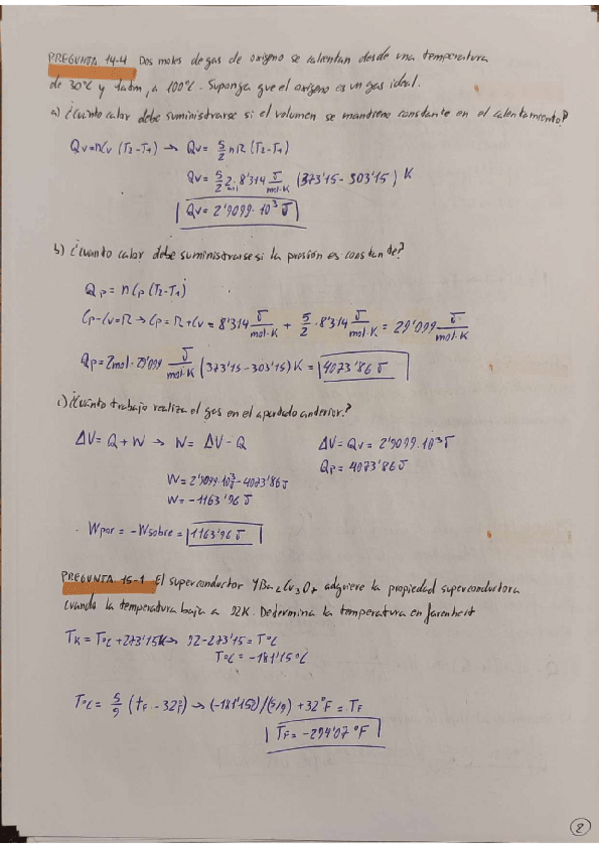 PREGUNTA 14-4 Dos moles de gas de oxígeno se calientan desde una temperatura
de 30°C y 1atm, a 100°C. Suponga que el oxígeno es un gas ideal.
a) ¿Cuánto calor debe suministrarse si el volumen se mantiene constante en el calentamiento?
Qv=nCv (T2-T1) → Qv= 5/2 nR (T2-T1)
Qv= 5/2 2mol 8'314 J/mol·K (373'15-303'15) K
Qv=2'9099·10³ J
b) ¿Cuanto calor debe suministrarse si la presión es constante?
Qp= nCp (T2-T1)
Cp-Cv=R → Cp=R+Cv = 8'314 J/mol·K + 5/2 · 8'314 J/mol·K = 29'099 J/mol·K
Qp=2mol·29'099 J/mol·K (373'15-303'15) K = 4073'86 J
c) ¿Cuánto trabajo realiza el gas en el apartado anterior?
ΔU= Q+W → W= ΔU-Q ΔU=Qv= 2'9099·10³J
Qp= 4073'86J
W=2'9099·10³-4073'86J
W=-1163'96 J
Wpor = -Wsobre = 1163'96 J
PREGUNTA 15-1 El superconductor YBa2Cu3O7 adquiere la propiedad superconductora
cuando la temperatura baja a 92K. Determina la temperatura en farenhert
TK = T°C+273'15K → 92-273'15= T°C
T°C= -181'15°C
T°C= 5/9 (tF-32°F) → (-181'15)/(5/9) +32°F = TF
TF= -294'07 °F
2